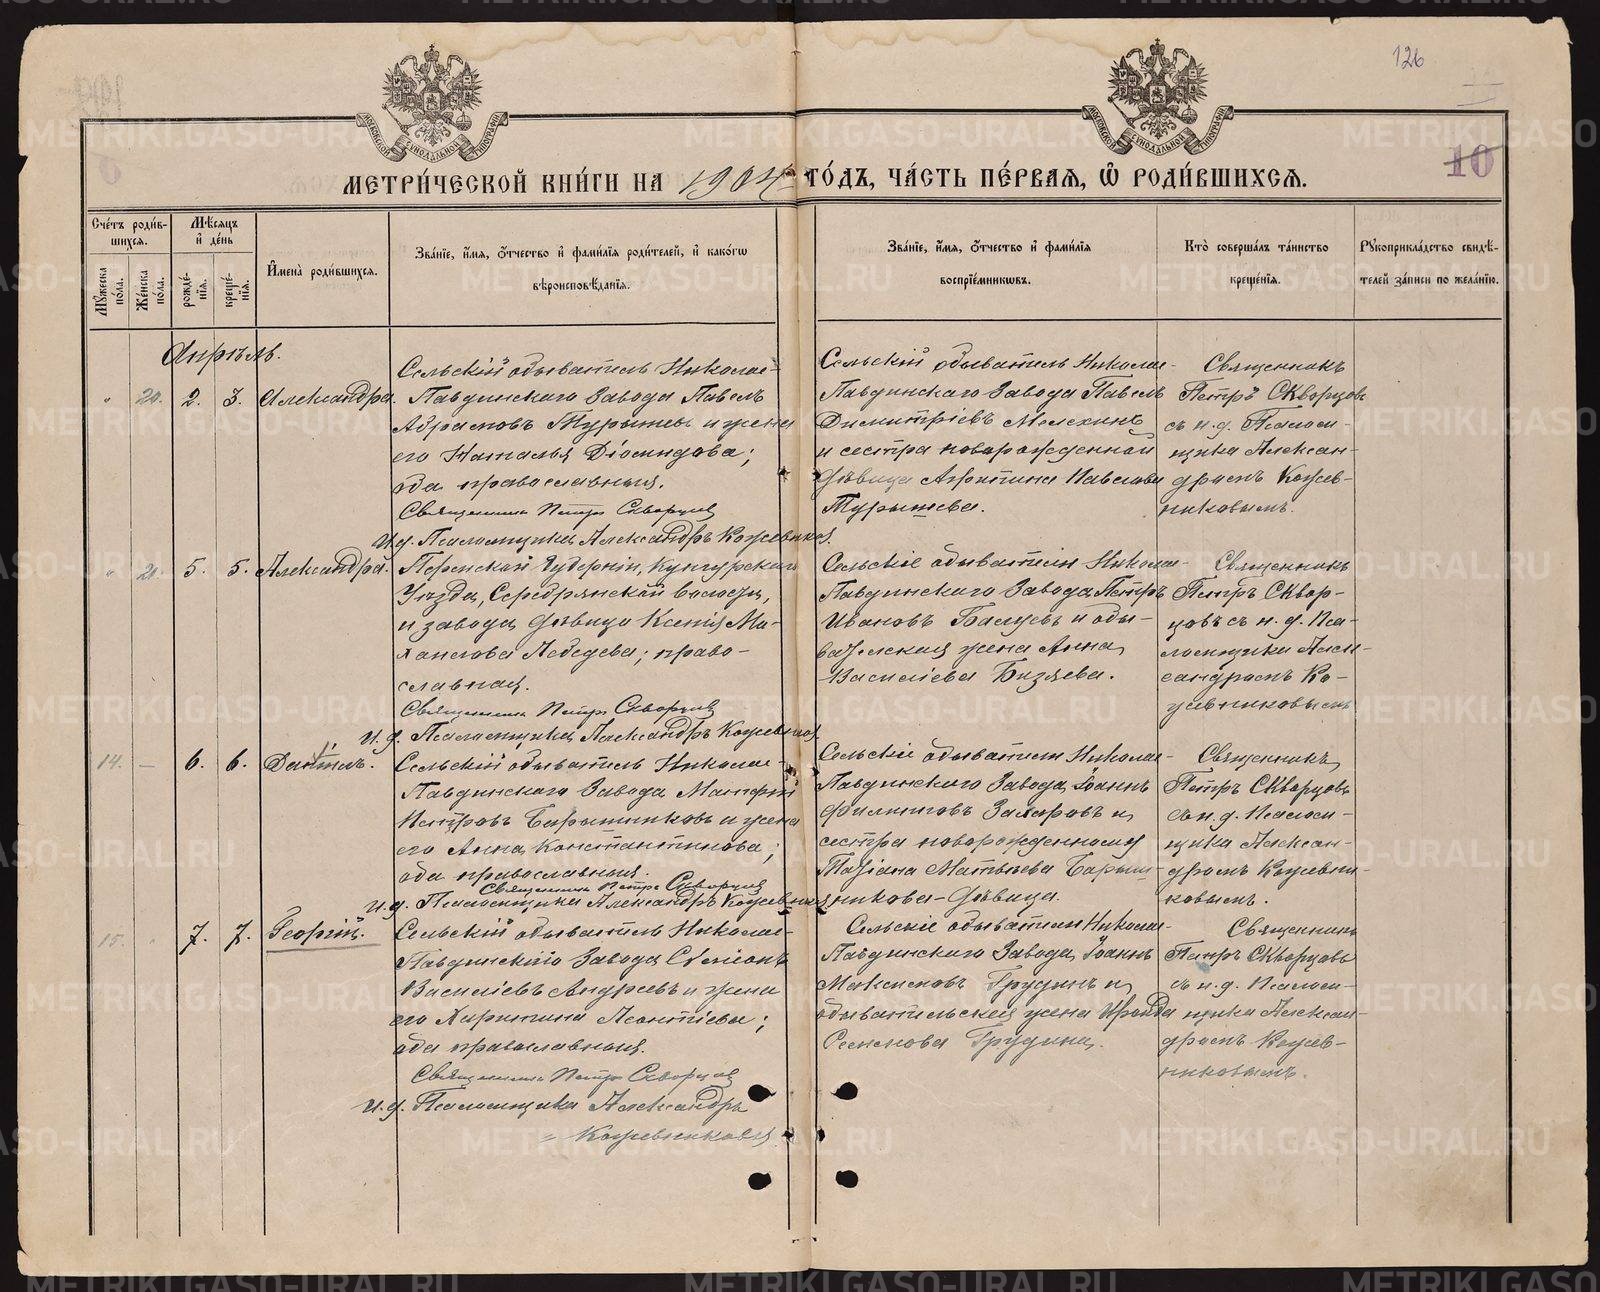 126
10
МОСКОВСКОЙ СѴНОДАЛЬНОЙ ТИПОГРАФІИ
МОСКОВСКОЙ СѴНОДАЛЬНОЙ ТИПОГРАФІИ
МЕТРИ́ЧЕСКОЙ КНИ́ГИ НА 1904 ГО́ДЪ, ЧА́СТЬ ПЕ́РВАЯ, Ѡ РОДИ́ВШИХСЯ.
Сче́тъ роди́в-
шихся.
Мѣ́сяцъ
и҆ де́нь
Мꙋ́жеска по́ла.
Же́нска по́ла.
рожде́-
нїѧ.
креще́-
нїѧ.
И҆мена̀ роди́вшихся.
Зва́нїе, и҆́мѧ, ѻ҆́тчество и҆ фами́лїѧ роди́телей, и҆ како́гѡ
вѣроисповѣ́данїѧ.
Зва́нїе, и҆́мѧ, ѻ҆́тчество и҆ фами́лїѧ
воспрїе́мникѡвъ.
Кто̀ соверша́лъ та́инство
креще́нїѧ.
Рꙋкоприкла́дство свидѣ́-
телей за́писи по жела́нїю.
Апрѣль.
" 20. 2. 3. Александра.
Сельскій обыватель Николае-
Павдинскаго Завода Павелъ
Абрамовъ Турышевъ и жена
его Наталья Діомидова;
оба православные.
Священникъ Петръ Скворцов
И. д. Псаломщика Александръ Кожевников.
Сельскій обыватель Николае-
Павдинскаго Завода Павелъ
Димитріевъ Мелехинъ
и сестра новорожденной
дѣвица Агрипина Павлова
Турышева.
Священникъ
Петръ Скворцовъ
съ и. д. Псалом-
щика Алексан-
дромъ Кожев-
никовымъ.
" 21. 5. 5. Александра.
Пермской Губерніи, Кунгурскаго
Уѣзда, Серебрянской волости,
и завода дѣвица Ксенія Ми-
хаилова Лебедева; право-
славная.
Священникъ Петръ Скворцов
И. д. Псаломщика Александръ Кожевников.
Сельскіе обыватели Николае-
Павдинскаго Завода Петръ
Ивановъ и обы-
вательская жена Анна
Василіева Бизяева.
Священникъ
Петръ Сквор-
цовъ съ и. д. Пса-
ломщика Алек-
сандромъ Ко-
жевниковымъ
14. — 6. 6. Даніилъ.
Сельскій обыватель Николае-
Павдинскаго Завода Матфій
Петровъ Барышниковъ и жена
его Анна Константинова;
оба православные.
Священникъ Петръ Скворцов
И. д. Псаломщика Александръ Кожевников
Сельскіе обыватели Николае-
Павдинскаго Завода Іоаннъ
Филиповъ Захаровъ и
сестра новорожденнаго
Татіана Матвѣева Барыш-
никова-дѣвица.
Священникъ
Петръ Скворцовъ
съ и. д. Псалом-
щика Алексан-
дромъ Кожевни-
ковымъ.
15. " 7. 7. Георгій.
Сельскій обыватель Николае-
Павдинскаго Завода Симеонъ
Василіевъ Андреевъ и жена
его Харитина Леонтіева;
оба православные.
Священникъ Петръ Скворцов
И. д. Псаломщика Александръ
Кожевников
Сельскіе обыватели Николае-
Павдинскаго Завода Іоаннъ
Максимовъ Грудинъ и
обывательская жена Ираида
Семенова Грудина.
Священникъ
Петръ Скворцовъ
съ и. д. Псалом-
щика Алексан-
дромъ Кожев-
никовымъ.
METRIKI.GASO-URAL.RU